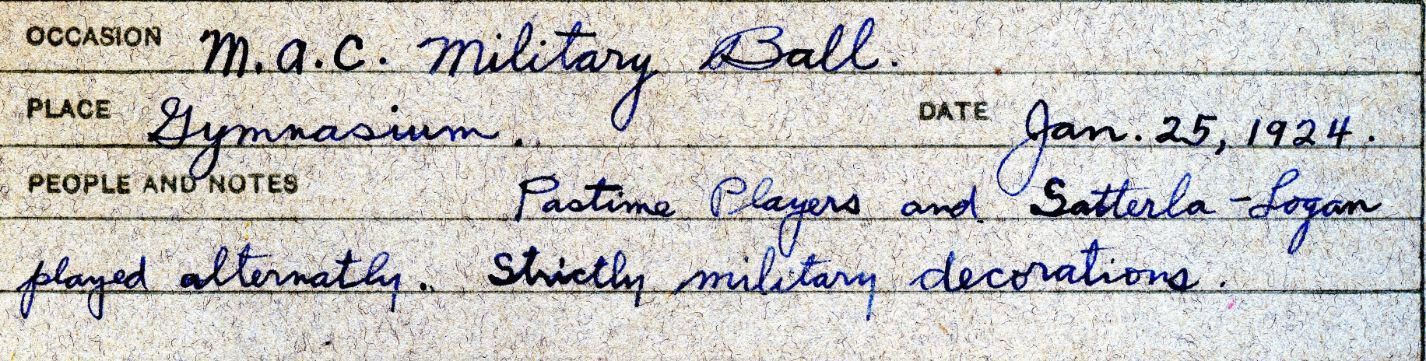 OCCASION M.A.C. Military Ball.
PLACE Gymnasium. DATE Jan. 25, 1924.
PEOPLE AND NOTES Pastime Players and Satterla-Logan
played alternatly. Strictly military decorations.